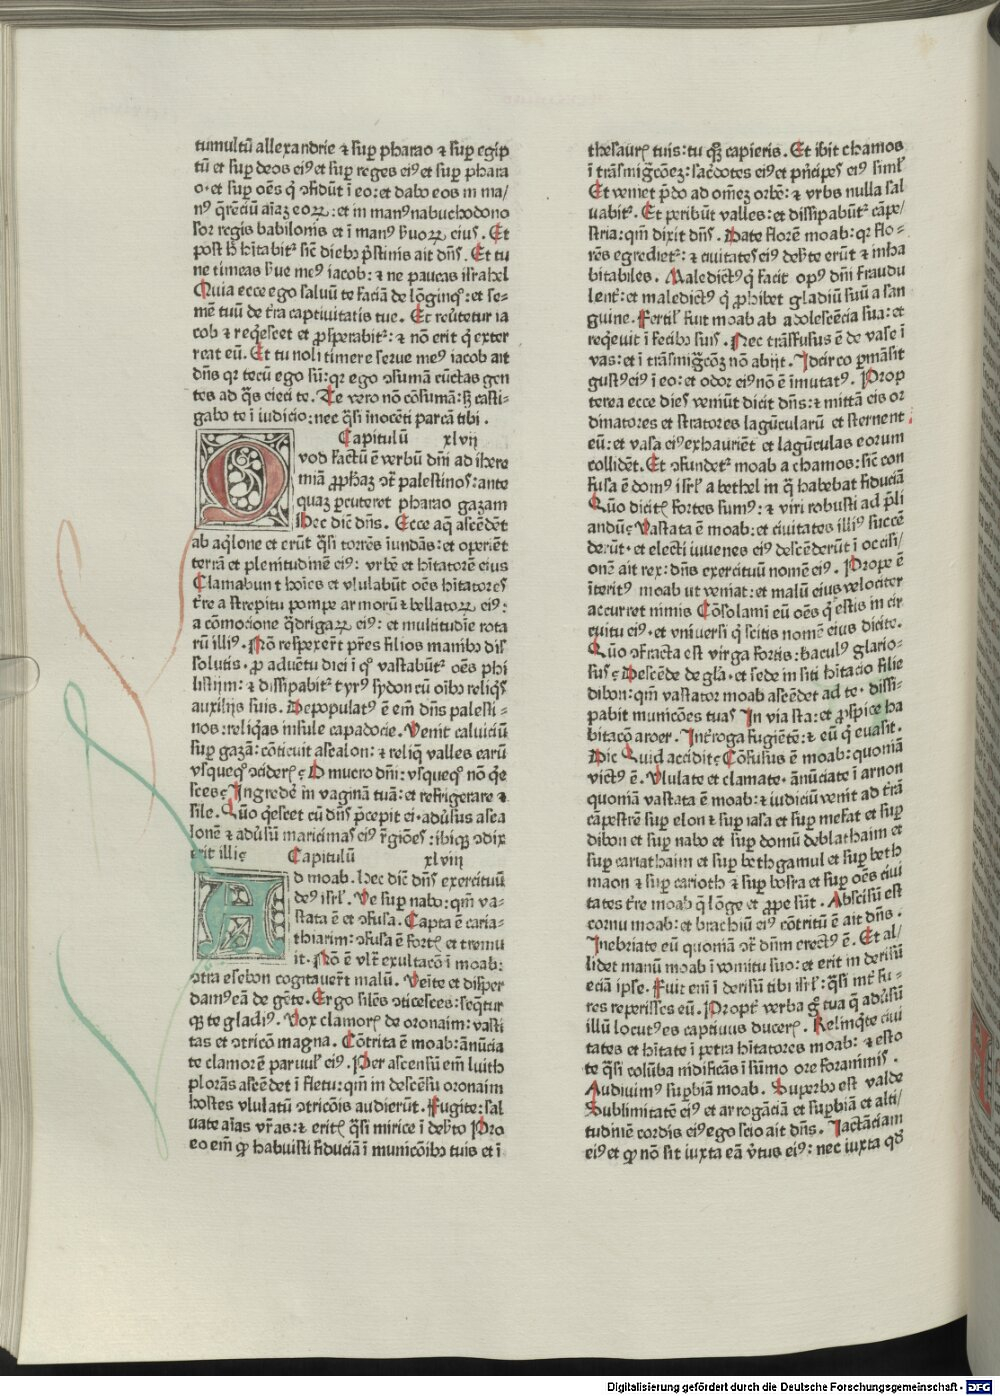 tumultū allexandrie ⁊ suꝑ pharao ⁊ suꝑ egip
tū et suꝑ deos eiꝰ et suꝑ reges eiꝰ et suꝑ phara
o· et suꝑ oēs q̇ ꝯfidūt ī eo: et dabo eos in ma/
nꝰ q̄rēciū aīaȝ eoꝝ: et in manꝰ nabuchodono
sor regis babilonis et ī manꝰ ẜuoꝝ eius. Et
post h̄ hītabitᷣ sic̄ diebꝰ pͥstinis ait dn̄s. Et tu
ne timeas ẜue meꝰ iacob: ⁊ ne paueas israhel
Quia ecce ego saluū te faciā de lōginqͦ: et se-
mē tuū de t̄ra captiuitatis tue. Et reūtetur ia
cob ⁊ reqͥescet et ꝓsperabitᷣ: ⁊ nō erit qͥ exter
reat eū. Et tu noli timere serue meꝰ iacob ait
dn̄s qꝛ tecū ego sū: qꝛ ego ꝯsumā cūctas gen
tes ad q̄s eieci te. Te vero nō cōsumā: sȝ casti-
gabo te ī iudicio: nec q̄si īnocēti parcā tibi.
Capitulū xlvij
Qvod factū ē verbū dn̄i ad ihere
miā ꝓphaȝ ꝯͭ palestinos: ante
quaȝ ꝑcuteret pharao gazam
Hec dic̄ dn̄s. Ecce aq̄ ascēdēt
ab aqͥlone et erūt q̄si torrēs iundās: et operiēt
terrā et plenitudinē eiꝰ: vrbē et hītatorē eius
Clamabunt hoīes et vlulabūt oēs hītatores
t̄re a strepitu pompe armorū ⁊ bellatoꝝ eiꝰ:
a cōmocione q̄drigaꝝ eiꝰ: et multitudīe rota
rū illiꝰ. Nō respexerт̄ pr̄es filios manibꝰ dis
solutis· ꝓ aduētu diei ī qͦ vastabūtᷣ oēs phi
listijm: ⁊ dissipabitᷣ tyrꝰ sydon cū oībꝰ reliqͥs
auxilijs suis. Depopulatꝰ ē em̄ dn̄s palesti-
nos: reliq̄as insule capadocie. Venit caluiciū
suꝑ gazā: cōticuit ascalon: ⁊ reliq̄ valles earū
vsquequo ꝯcideris O mucro dn̄i: vsqueqͦ nō qͥe
sces Ingredē in vaginā tuā: et refrigerare ⁊
sile. Quō qͥescet cū dn̄s p̄cepit ei· aduͤsus asca
lonē ⁊ aduͤsū maritimas eiꝰ r̄giōes: ibiqꝫ ꝯdix
erit illi
Capitulū xlviij
AD moab. Hec dic̄ dn̄s exercituū
deꝰ isrl̄. Ve suꝑ nabo: qm̄ va-
stata ē et ꝯfusa. Capta ē caria-
thiarim: ꝯfusa ē fortꝭ et tremu
it. Nō ē vltᷣ exultacō ī moab:
ꝯtra esebon cogitauerт̄ malū. Veīte et disꝑ
damꝰ eā de gēte. Ergo silēs ꝯticesces: seqͣtur
qꝫ te gladiꝰ. Vox clamorꝭ de oronaim: vasti
tas et ꝯtricō magna. Cōtrita ē moab: ānūcia
te clamorē paruulꝭ eiꝰ. Per ascensū em̄ luith
plorās ascēdet ī fletu: qm̄ in descēsu oronaim
hostes vlulatū ꝯtricōis audierūt. Fugite: sal
uate aīas vr̄as: ⁊ eritꝭ q̄si mirice ī deẜto Pro
eo em̄ qꝙ habuisti fiduciā ī municōibꝰ tuis et ī
thesaurꝭ tuis: tu qꝫ capieris. Et ibit chamos
ī trāsmigᷓcōeȝ: sac̄dotes eiꝰ et pͥncipes eiꝰ siml̄
Et veniet p̄do ad om̄eȝ orbē: ⁊ vrbs nulla sal
uabitᷣ. Et peribūt valles: et dissipabūtᷣ cāpe/
stria: qm̄ dixit dn̄s. Date florē moab: qꝛ flo-
rēs egredietᷣ: ⁊ ciuitates eiꝰ deẜte erūt ⁊ inha
bitabiles. Maledictꝰ qͥ facit opꝰ dn̄i fraudu
lent̄: et maledictꝰ qͥ ꝓhibet gladiū suū a san
guine. Fertilꝭ fuit moab ab adolescēcia sua: et
reqͥeuit ī fecibꝰ suis. Nec trāsfusus ē de vase ī
vas: et ī trāsmigᷓcōȝ nō abijt. Idcirco ꝑmāsit
gustꝰ eiꝰ ī eo: et odor eiꝰ nō ē īmutatꝰ. Prop
terea ecce dies veniūt dicit dn̄s: ⁊ mittā eis or
dinatores et stratores lagūcularū et sternent
eū: et vasa eiꝰ exhauriēt et lagūculas eorum
collidēt. Et ꝯfundetᷣ moab a chamos: sic̄ con
fusa ē domꝰ isrl̄ a bethel in q̄ habebat fiduciā
Quō dicitꝭ fortes sumꝰ: ⁊ viri robusti ad p̄li
andū Vastata ē moab: et ciuitates illiꝰ succē
derūt· et electi iuuenes eiꝰ descēderūt ī occisi/
onē ait rex: dn̄s exercituū nomē eiꝰ. Prope ē
īteritꝰ moab ut veniat: et malū eius velociter
accurret nimis Cōsolamī eū oēs qͥ estis in cir
cuitu eiꝰ· et vniuersi qͥ scitis nomē eius dicite.
Quō ꝯfracta est virga fortis: baculꝰ glario-
sus Descēde de gl̄a· et sede in siti hītacio filie
dibon: qm̄ vastator moab ascēdet ad te· dissi-
pabit municōes tuas In via sta: et ꝓspice ha
bitacō aroer. Int̄roga fugiētē: ⁊ eū qͥ euasit.
Dic Quid accidit Cōfusus ē moab: quoniā
victꝰ ē. Vlulate et clamate· ānūciate ī arnon
quoniā vastata ē moab: ⁊ iudiciū venit ad t̄rā
cāpestrē suꝑ elon ⁊ suꝑ iasa et suꝑ mefat et suꝑ
dibon et suꝑ nabo et suꝑ domū deblathaim et
suꝑ cariathaim et suꝑ bethgamul et suꝑ beth
maon ⁊ suꝑ carioth ⁊ suꝑ bosra et suꝑ oēs ciui
tates t̄re moab q̄ lōge et ꝓpe sūt. Abscisū est
cornu moab: et brachiū eiꝰ cōtritū ē ait dn̄s.
Inebriate eū quoniā ꝯͭ dn̄m erectꝰ ē. Et al/
lidet manū moab ī vomitu suo: et erit in derisū
eciā ipse. Fuit em̄ ī derisū tibi isrl̄: q̄si int̄ fu-
res reperisses eū. Propt̄ verba gͦ tua q̄ aduͤsū
illū locutꝰ es captiuus ducerꝭ. Relinqͥte ciui
tates et hītate ī petra hītatores moab: ⁊ esto
te q̄si colūba nidificās ī sūmo ore foraminis.
Audiuimꝰ suꝑbiā moab. Superbꝰ est valde
Sublimitatē eiꝰ et arrogāciā et suꝑbiā et alti/
tudinē cordis eiꝰ ego scio ait dn̄s. Iactāciam
eiꝰ et qꝙ nō sit iuxta eā v̄tus eiꝰ: nec iuxta qd̄
Digitalisierung gefördert durch die Deutsche Forschungsgemeinschaft - DFG